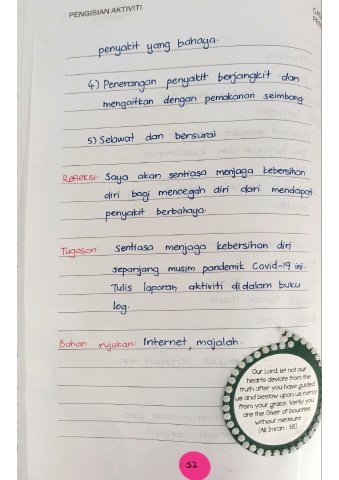 PENGISIAN AKTIVITI
penyakit yang bahaya.
4) Penerangan penyakit berjangkit dan
mengaitkan dengan pemakanan seimbang
5) Selawat dan bersurai
Refleksi: Saya akan sentiasa menjaga kebersihan
diri bagi mencegah diri dari mendapat
penyakit berbahaya.
Tugasan: Sentiasa menjaga kebersihan diri
sepanjang musim pandemik Covid-19 ini.
Tulis laporan aktiviti didalam buku
log.
Bahan rujukan: Internet, majalah.
Our Lord, let not our
hearts deviate from the
truth after you have guided
us and bestow upon us mercy
from your grace. Verily you
are the Giver of bounties
without measure
52